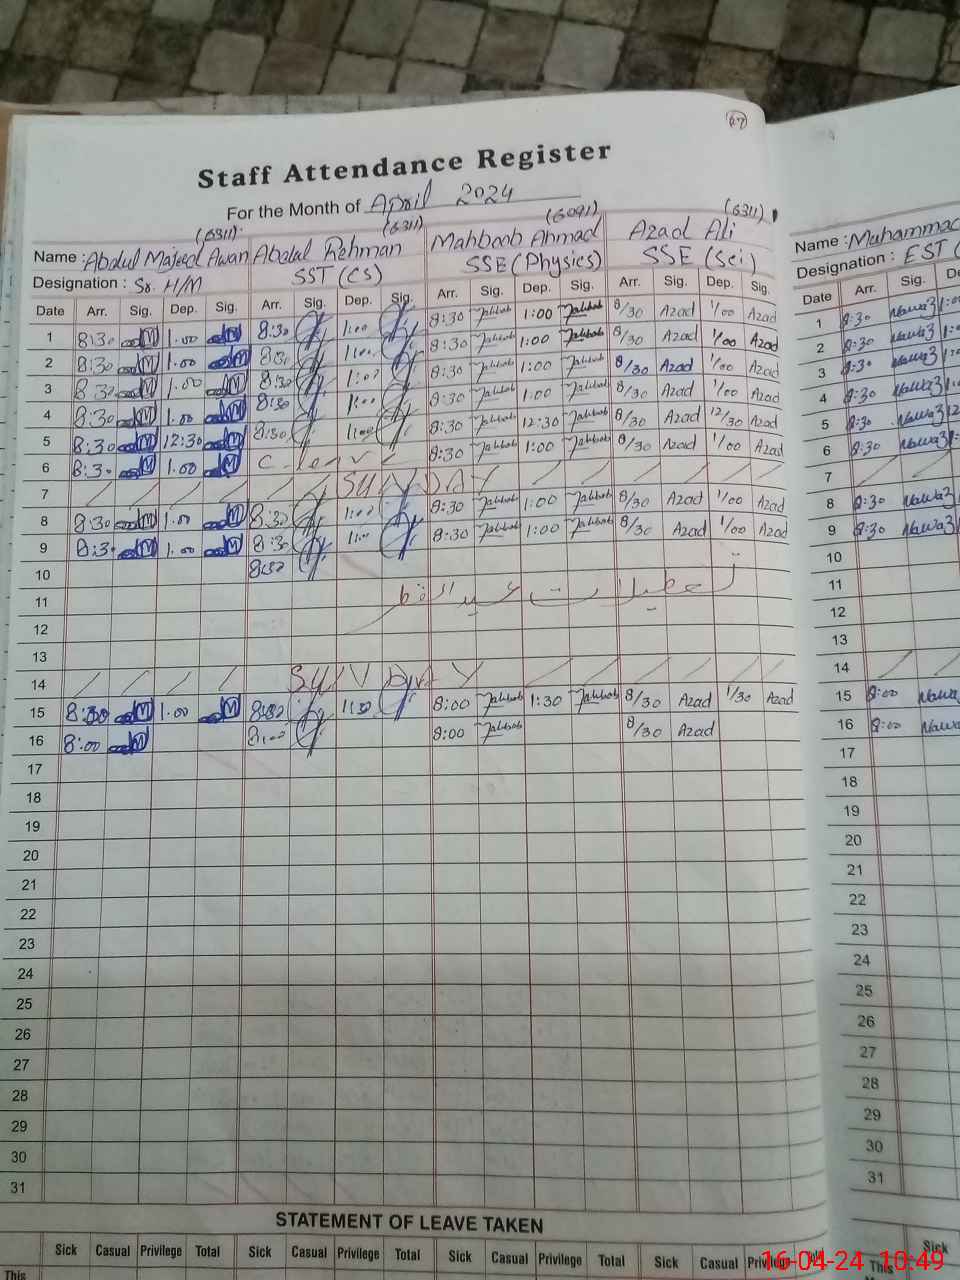 67
Staff Attendance Register
For the Month of April 2024
(6311) (6311) (6091) (6311)
Name : Abdul Majeed Awan Abdul Rehman Mahboob Ahmad Azad Ali Name : Muhammad
Designation : Sr. H/M SST (CS) SSE (Physics) SSE (Sci) Designation : EST (
Date Arr. Sig. Dep. Sig. Arr. Sig. Dep. Sig. Arr. Sig. Dep. Sig. Arr. Sig. Dep. Sig. Date Arr. Sig.
1 8:30 1.00 8:30 1:00 8:30 1:00 8/30 Azad 1/00 Azad 1 8:30 Nawaz 1:00
2 8:30 1.00 8:30 1:00 8:30 1:00 8/30 Azad 1/00 Azad 2 8:30 Nawaz
3 8:30 1.00 8:30 1:00 8:30 1:00 8/30 Azad 1/00 Azad 3 8:30 Nawaz
4 8:30 1.00 8:30 1:00 8:30 1:00 8/30 Azad 1/00 Azad 4 8:30 Nawaz
5 8:30 12:30 8:30 1:00 8:30 12:30 8/30 Azad 12/30 Azad 5 8:30 Nawaz
6 8:30 1.00 C-leave 8:30 1:00 8/30 Azad 1/00 Azad 6 8:30 Nawaz
7 SUNDAY 7
8 8:30 1.00 8:30 1:00 8:30 1:00 8/30 Azad 1/00 Azad 8 8:30 Nawaz
9 8:30 1.00 8:30 1:00 8:30 1:00 8/30 Azad 1/00 Azad 9 8:30 Nawaz
10 8:30 10
11 تعطیلات عید الفطر 11
12 12
13 13
14 SUNDAY 14
15 8:30 1.00 8:30 1:30 8:00 1:30 8/30 Azad 1/30 Azad 15 8:00 Nawaz
16 8:00 8:00 8:00 8/30 Azad 16 8:00 Nawaz
17 17
18 18
19 19
20 20
21 21
22 22
23 23
24 24
25 25
26 26
27 27
28 28
29 29
30 30
31 31
STATEMENT OF LEAVE TAKEN
Sick Casual Privilege Total Sick Casual Privilege Total Sick Casual Privilege Total Sick Casual Privilege Sick
This This
16-04-24 10:49